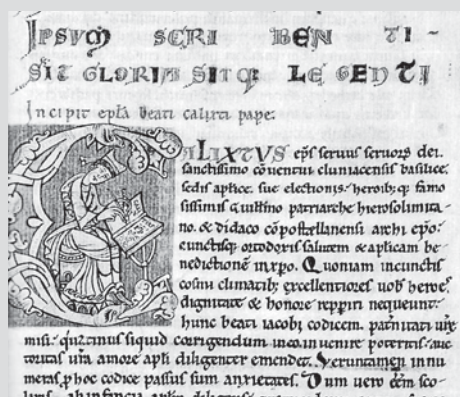 IPSVM SCRIBENTI-
SIT GLORIA SITQ: LEGENTI
Incipit epła beati calixti pape.
CALIXTVS epś seruus seruoꝝ dei.
sanctissimo cōuentui cluniacensis basilice
sedis aplice. sue electionis. heroibꝫ qꝫ famo
sissimis Guilłmo patriarche hierosolimita-
no. & didaco cōpostellanensi archi ep̄o.
cunctisqꝫ ortodoxis salutem & aplicam be-
nedictionē inxpo. Quoniam incunctis
cosmi climatibꝫ excellentiores uobˢ heroes
dignitate & honore repperi nequeunt.
hunc beati iacobi codicem. patnitati uīe
misi. qͣtinus siquid corrigendum ineo inuenire poteritis. auc-
toritas uīa amore apłi diligenter emendet. Verumtamen innu
meras ꝓ hoc codice passus sum anxietates. Dum uero eēm sco-
laris. ab infancia